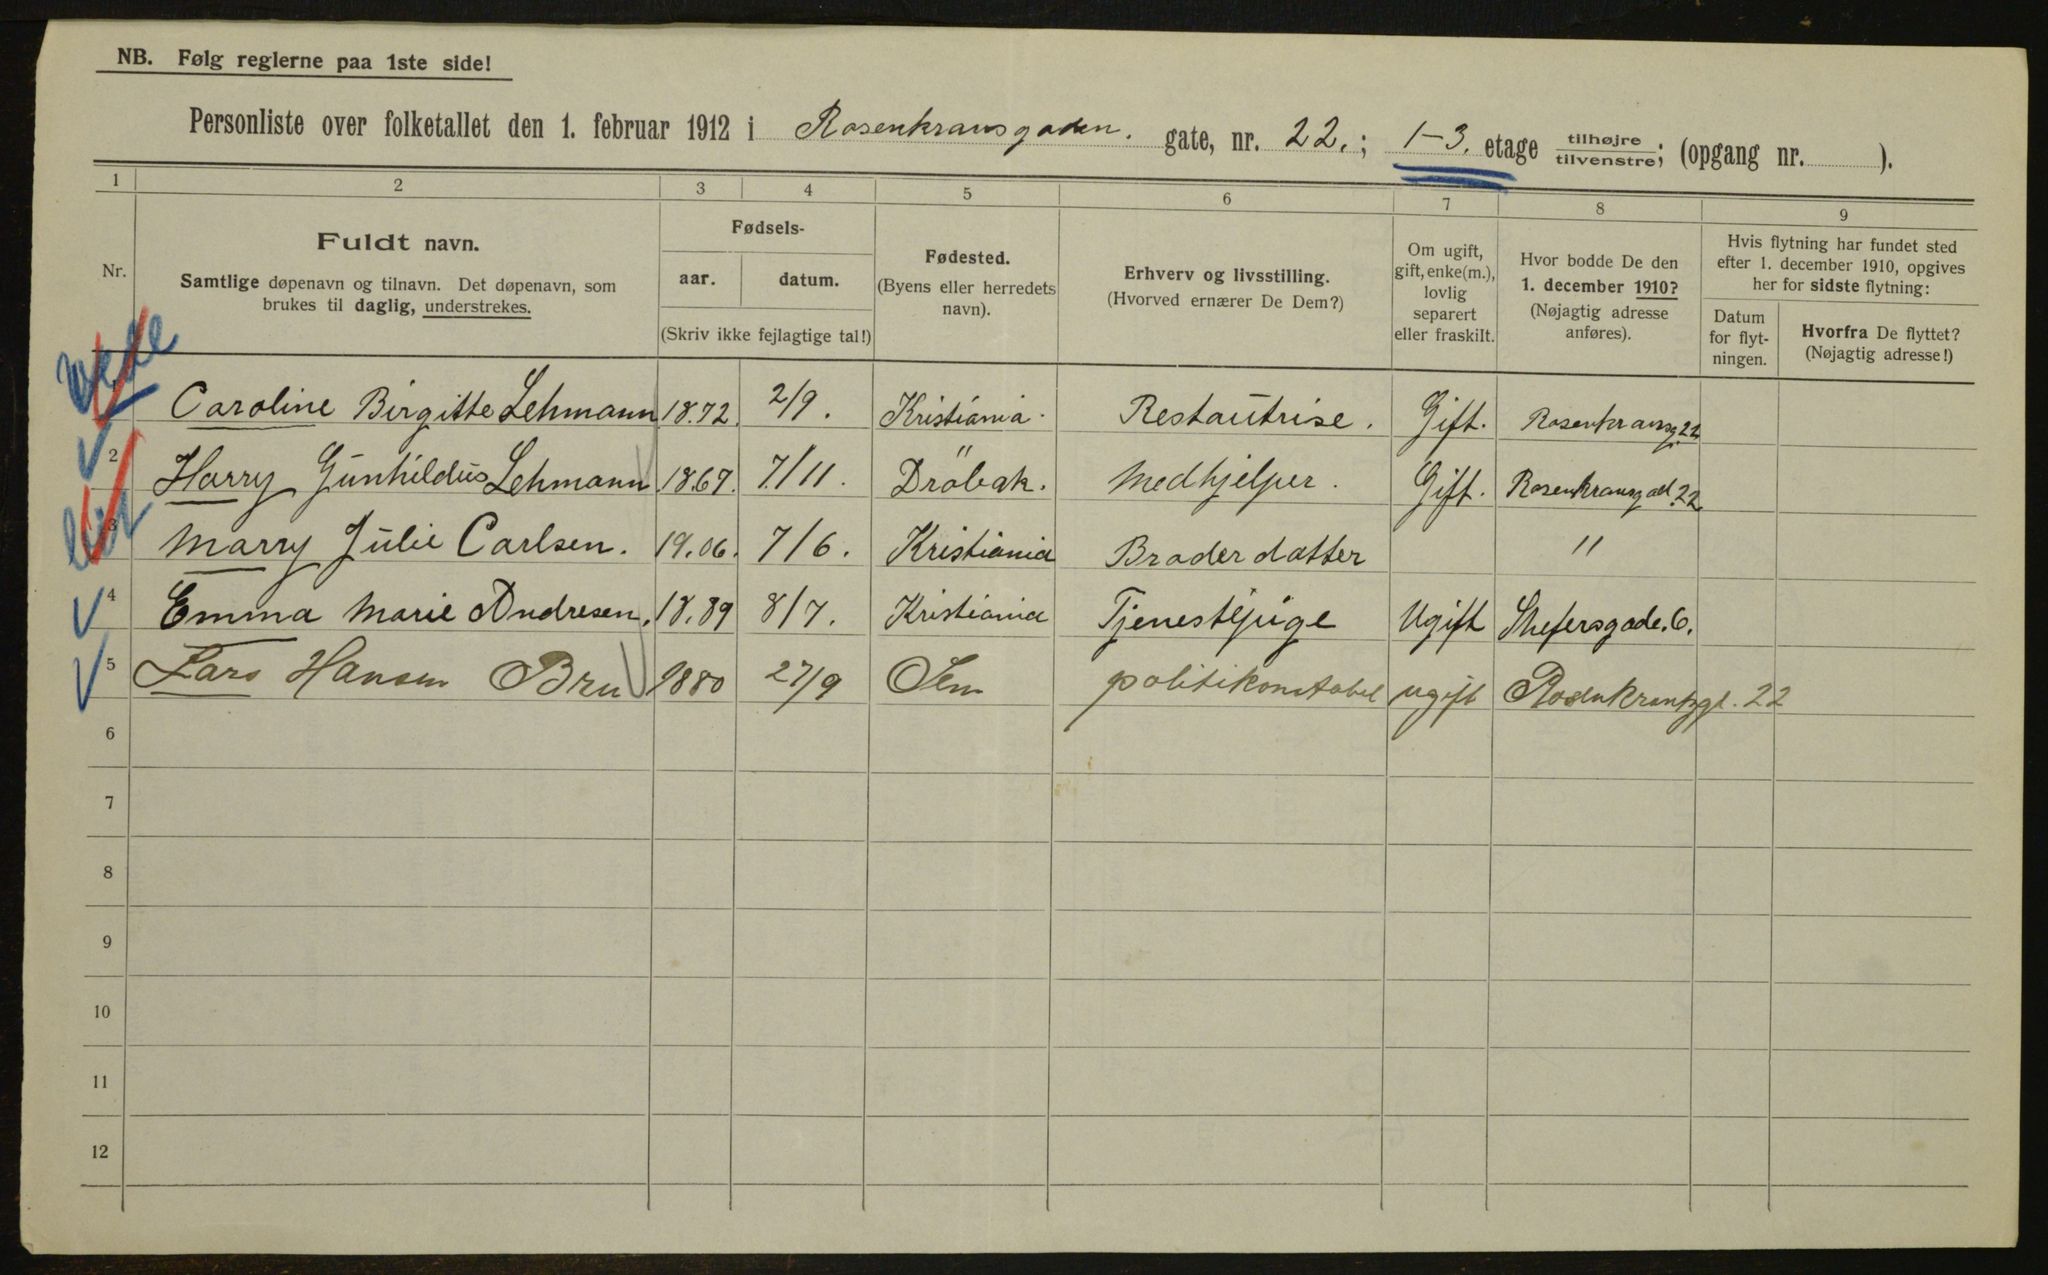 NB. Følg reglerne paa 1ste side!
Personliste over folketallet den 1. februar 1912 i Rosenkransgaden. gate, nr. 22.; 1-3. etage tilhøjre tilvenstre; (opgang nr. ).
1 2 3 4 5 6 7 8 9
Nr.
Fuldt navn.
Samtlige døpenavn og tilnavn. Det døpenavn, som
brukes til daglig, understrekes.
Fødsels-
aar. datum.
(Skriv ikke fejlagtige tal!)
Fødested.
(Byens eller herredets
navn).
Erhverv og livsstilling.
(Hvorved ernærer De Dem?)
Om ugift,
gift, enke(m.),
lovlig
separert
eller fraskilt.
Hvor bodde De den
1. december 1910?
(Nøjagtig adresse
anføres).
Hvis flytning har fundet sted
efter 1. december 1910, opgives
her for sidste flytning:
Datum
for flyt-
ningen.
Hvorfra De flyttet?
(Nøjagtig adresse!)
1 Caroline Birgitte Lehmann 18.72. 2/9. Kristiania. Restautrise. Gift. Rosenkransg. 22
2 Harry Gunhildus Lehmann 18.67. 7/11. Dröbak. Medhjelper. Gift. Rosenkransgad. 22
3 Marry Julie Carlsen. 19.06. 7/6. Kristiania Broder datter "
4 Emma Marie Andresen. 18.89 8/7. Kristiania Tjenestpige Ugift 6.
5 Lars Hansen Bru 1880 27/9 Sem politikonstabel ugift Rosenkrantzgt. 22
6
7
8
9
10
11
12